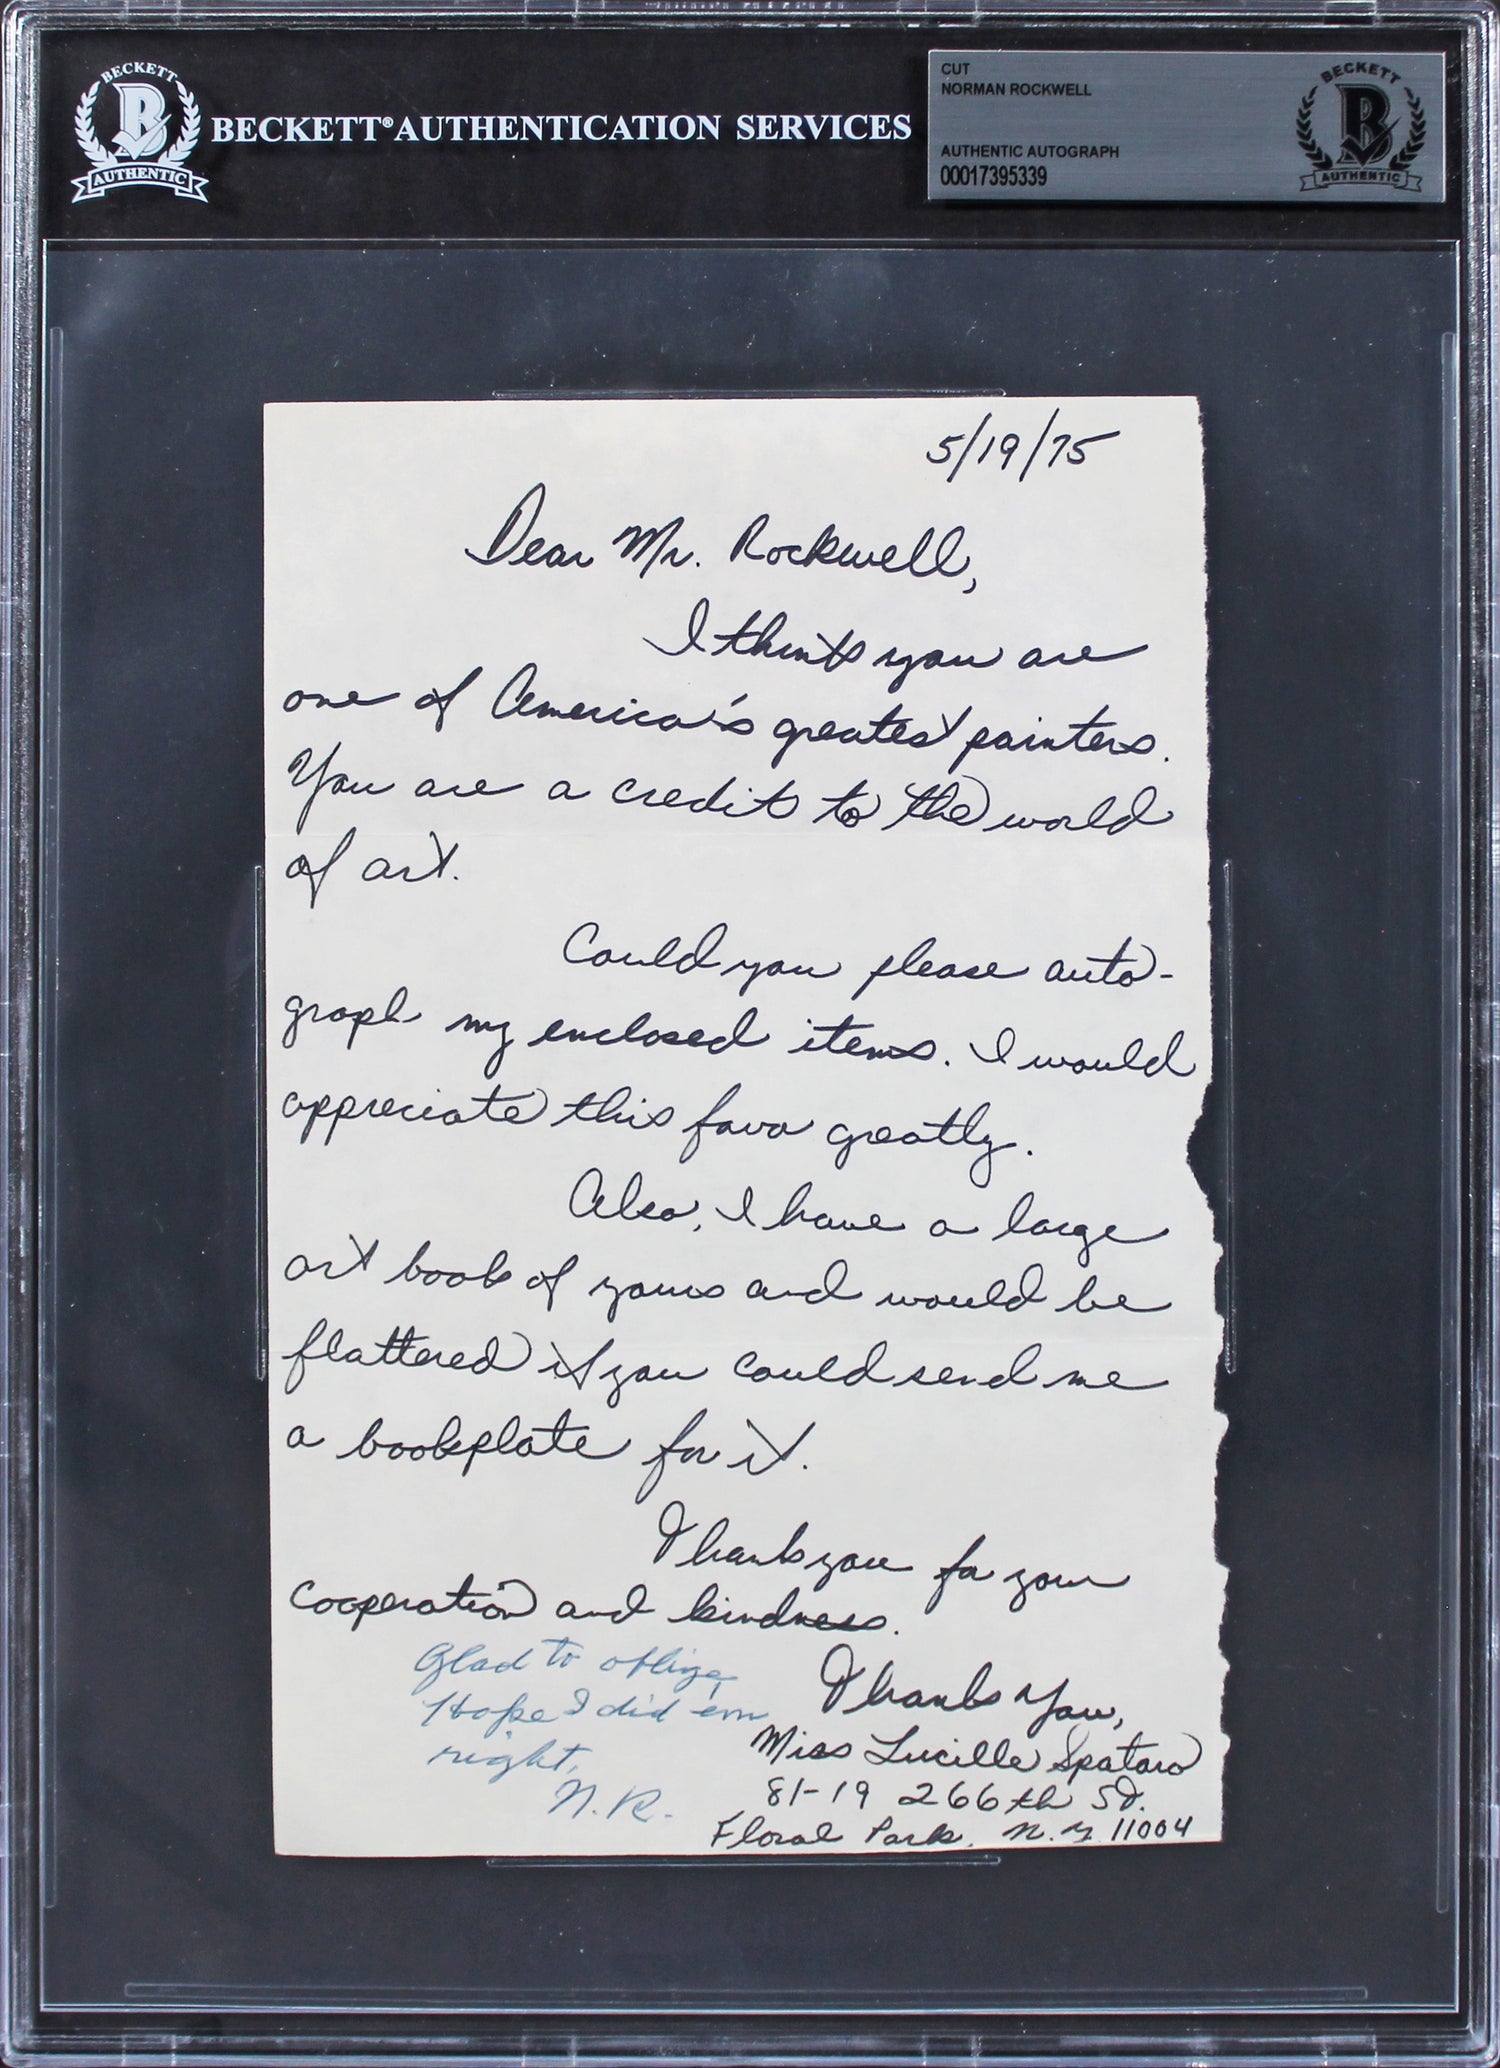 BECKETT
B
AUTHENTIC
BECKETT® AUTHENTICATION SERVICES
CUT
NORMAN ROCKWELL
AUTHENTIC AUTOGRAPH
00017395339
BECKETT
B
AUTHENTIC
5/19/75
Dear Mr. Rockwell,
I think you are
one of America's greatest painters.
You are a credit to the world
of art.
Could you please auto-
graph my enclosed items. I would
appreciate this favor greatly.
Also, I have a large
art book of yours and would be
flattered if you could send me
a bookplate for it.
Thank you for your
cooperation and kindness.
Glad to oblige,
Hope I did 'em
right,
N.R.
Thank You,
Miss Lucille Spataro
81-19 266th St.
Floral Park, N.Y. 11004